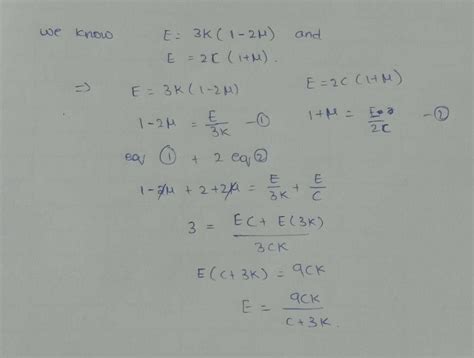 we know E = 3K(1-2μ) and
E = 2C(1+μ).
⇒ E = 3K(1-2μ) E = 2C(1+μ)
1-2μ = E/3K -① 1+μ = E/2C -②
eq ① + 2 eq ②
1-2μ + 2+2μ = E/3K + E/C
3 = EC + E(3K)/3CK
E(C+3K) = 9CK
E = 9CK/C+3K.